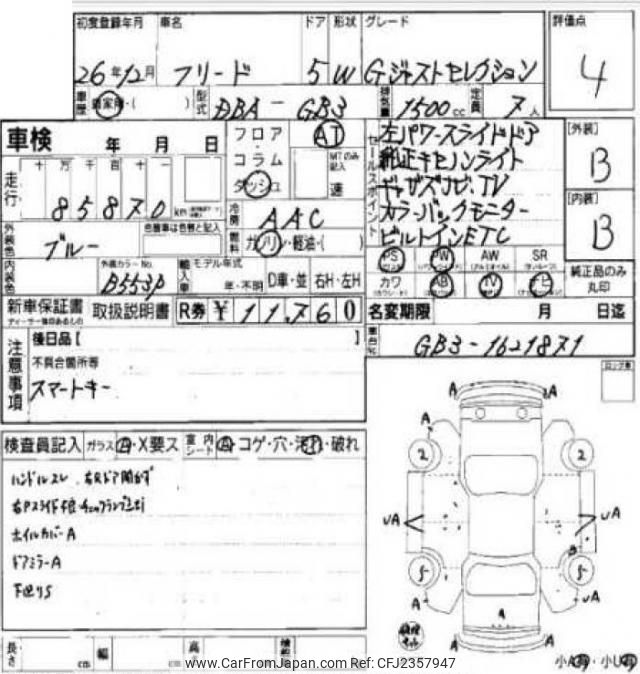 初度登録年月 車名 ドア 形状 グレード 評価点
26年12月 フリード 5 W G・ジャストセレクション 4
車歴 自家用・( ) 型式 DBA-GB3 排気量 1500cc 定員 7人
車検 年 月 日
フロア AT
コラム MTのみ記入
ダッシュ 速
セールスポイント
左パワースライドドア
純正キセノンライト
ギャザズナビ.TV
カラーバックモニター
ビルトインETC
[外装]
B
[内装]
B
走行 十 万 千 百 十 一
85870 km
冷房 AAC
燃料 ガソリン・軽油・( )
外装色 ブルー 色替車は色替と記入
内装色 外装カラーNo. B553P
輸入車 モデル年式 年・不明 D車・並 右H・左H
PS PW AW SR
カワ AB TV ナビ
純正品のみ丸印
新車保証書 取扱説明書 R券 ¥ 11,760
ディーラー保のあるもの
名変期限 月 日迄
車台No. GB3-1621871
注意事項
後日品[ ]
不具合箇所等
スマートキー
ロング車
検査員記入 ガラス A・X要ス 室内シート A・コゲ・穴・汚れ・破れ
ハンドルスレ 右Rドア開かず
ホイルカバーA
ドアミラーA
下廻りS
A A
A
2 2
UA UA
B
5 5
A A UA
A A
長さ cm 幅 cm 高さ
小A 小U
www.CarFromJapan.com Ref: CFJ2357947